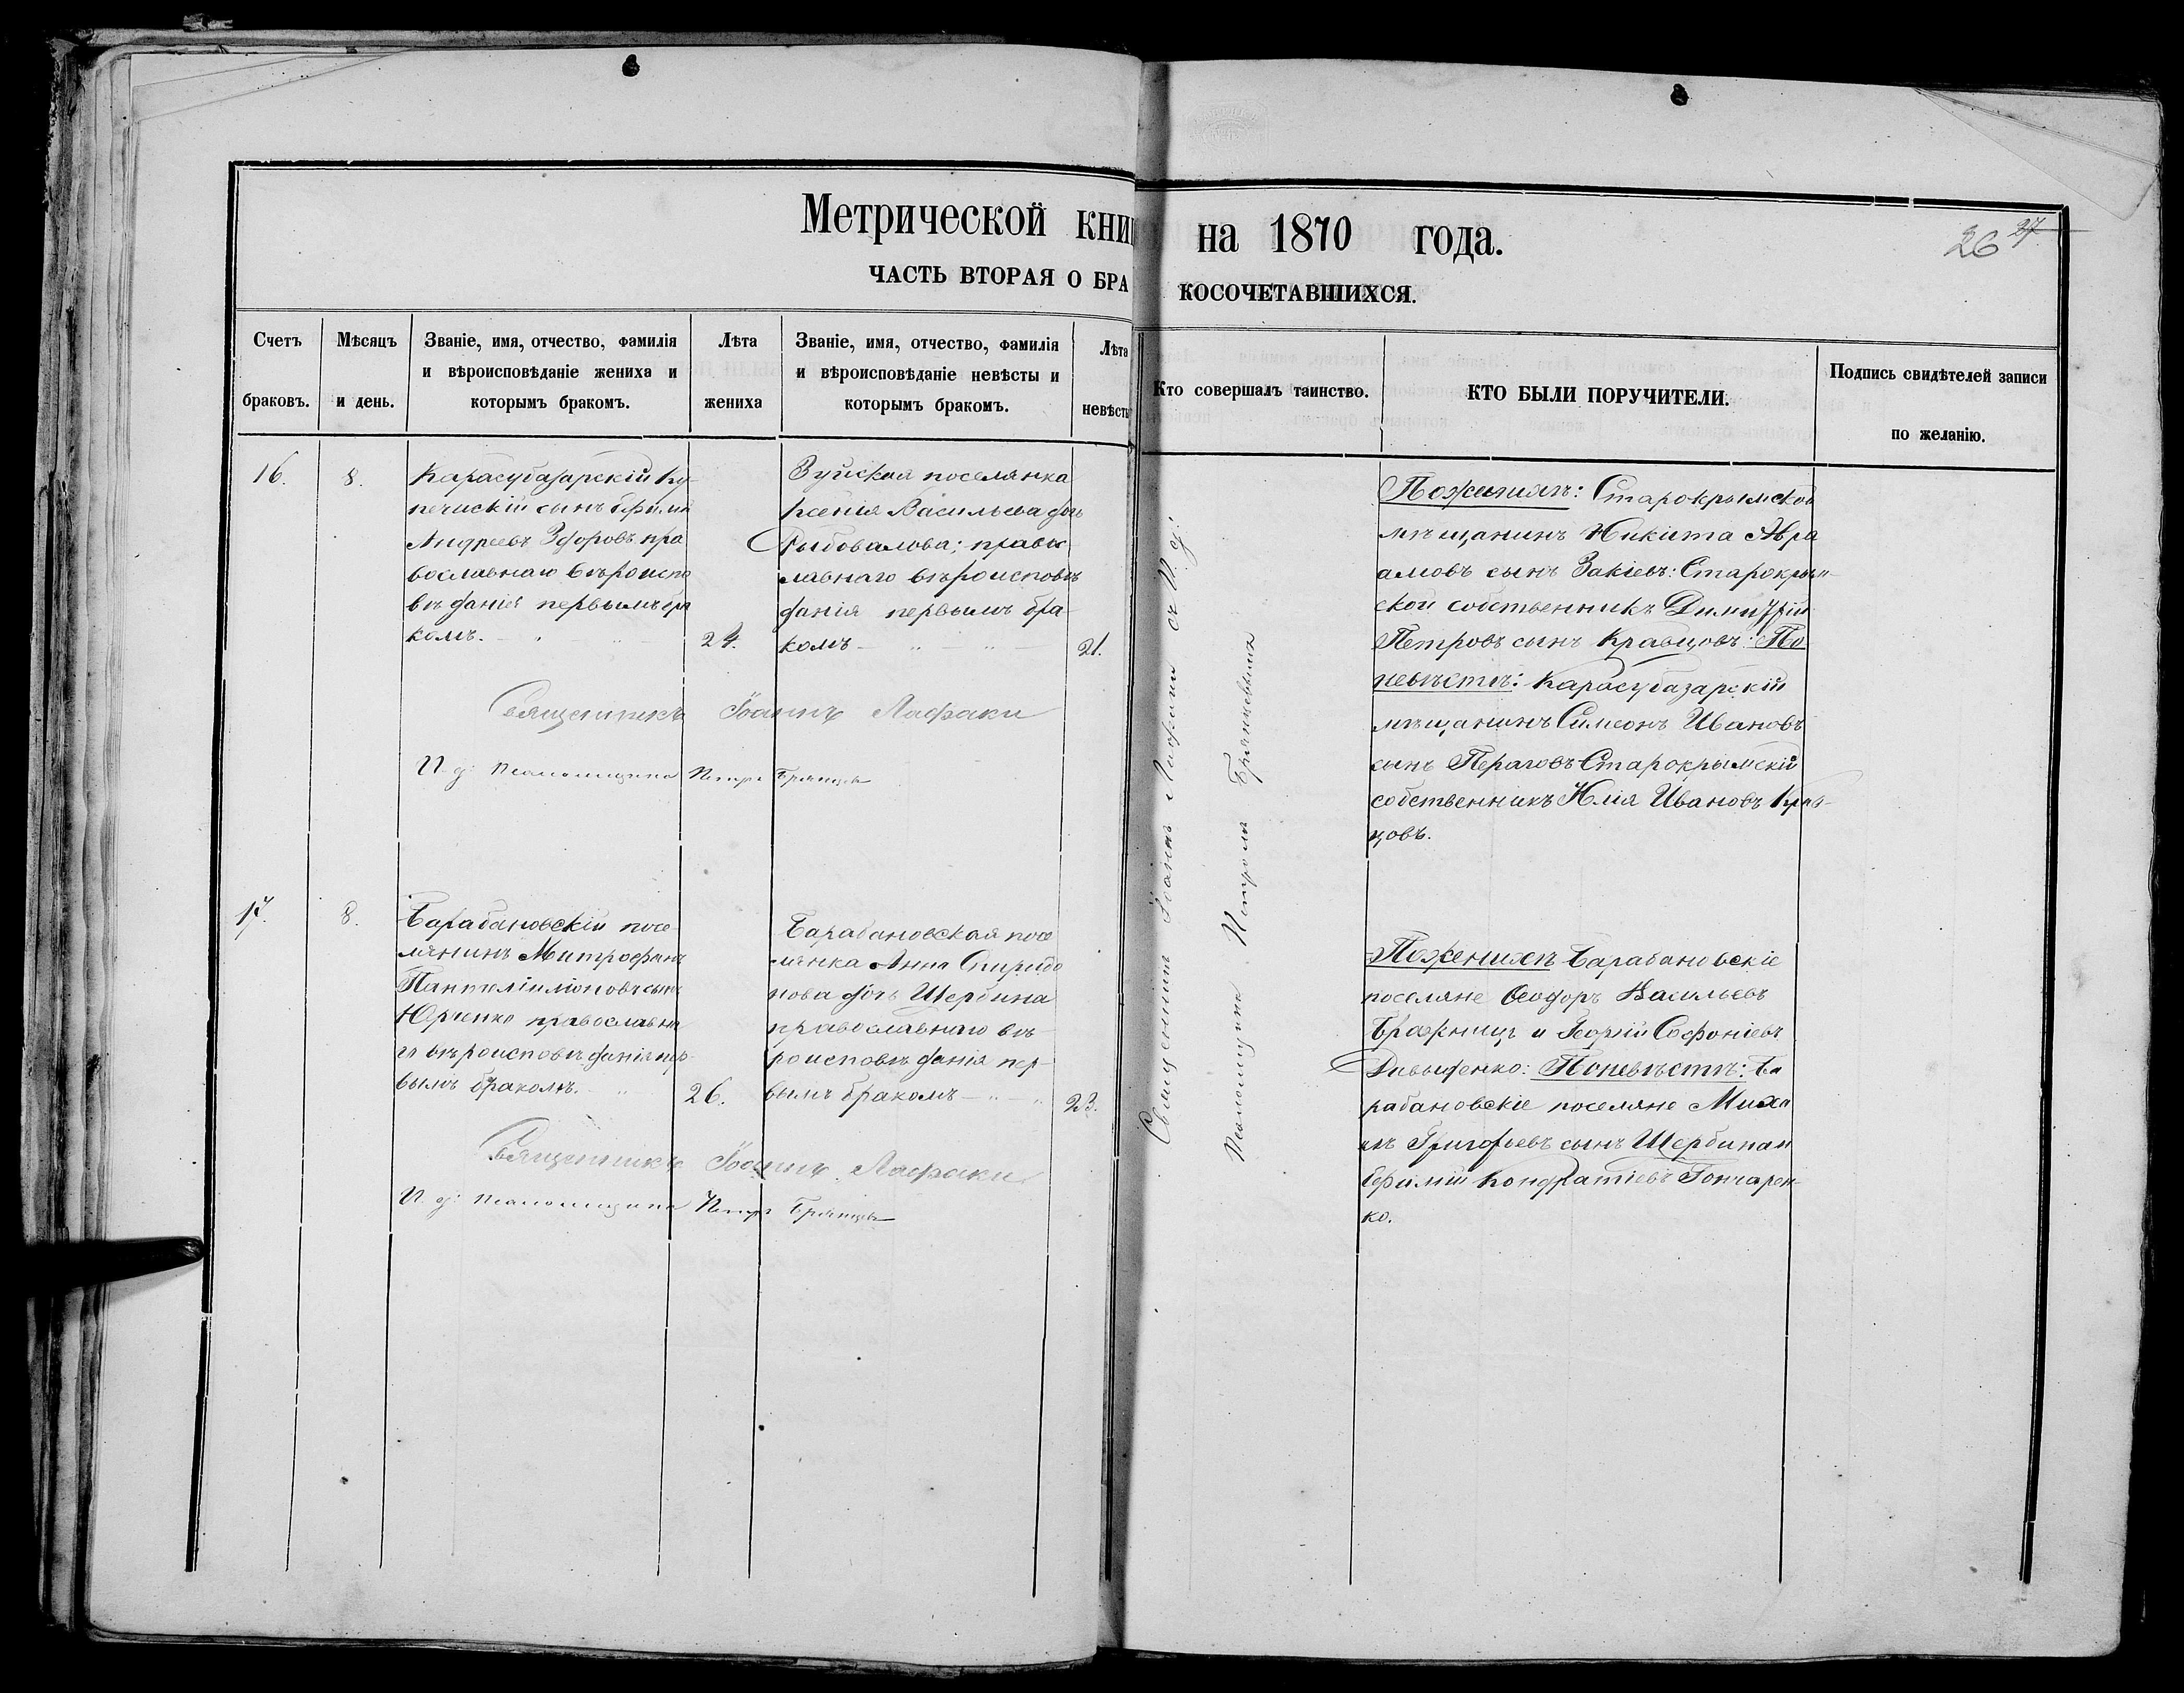 Метрической кни на 1870 года.
26 27
ЧАСТЬ ВТОРАЯ О БРА КОСОЧЕТАВШИХСЯ.
Счетъ браковъ.
Мѣсяцъ и день.
Званіе, имя, отчество, фамилія
и вѣроисповѣданіе жениха и
которымъ бракомъ.
Лѣта
жениха
Званіе, имя, отчество, фамилія
и вѣроисповѣданіе невѣсты и
которымъ бракомъ.
Лѣта
невѣсты
Кто совершалъ таинство.
КТО БЫЛИ ПОРУЧИТЕЛИ.
Подпись свидѣтелей записи
по желанію.
16.
8.
Карасубазарскій ку-
печискій сынъ Ефимій
Андреевъ Здоровъ пра
вославнаго вѣроиспо
вѣданія первымъ бра
комъ.
24.
Зуйская поселянка
Ксенія Васильева дочь
Рыбовалова; правос
лавнаго вѣроисповѣ
данія первымъ бра
комъ
21.
Священникъ Іоаннъ Лафаки
И. д: Псаломщика Петръ Брянцевъ
Священникъ Іоаннъ Лафаки съ И. д:
Псаломщика Петромъ Брянцевымъ
По женихѣ: Старокрымской
мѣщанинъ Никита Авра
амовъ сынъ Закіевъ: Старокрым-
ской собственникъ Димитрій
Петровъ сынъ Кравцовъ: По
невѣстѣ: Карасубазарскій
мѣщанинъ Симеонъ Ивановъ
сынъ Старокрымскій
собственникъ Илія Ивановъ Крав-
цовъ.
17.
8.
Барабановскій посе-
лянинъ Митрофанъ
Пантелиимоновъ сынъ
Юрченко православна
го вѣроисповѣданія пер-
вымъ бракомъ.
26.
Барабановская посе
лянка Анна Спиридо
нова дочь Щербина
православнаго вѣ-
роисповѣданія пер-
вымъ бракомъ
23.
Священникъ Іоаннъ Лафаки
И. д: Псаломщика Петръ Брянцевъ
По женихѣ Барабановскіе
поселяне Ѳеодоръ Васильевъ
Бражницъ и Георгій Софоніевъ
Давыденко: По невѣстѣ: Ба
рабановскіе поселяне Миха
илъ Григорьевъ сынъ Щербина и
Ефимій Кондратіевъ Гончарен
ко.